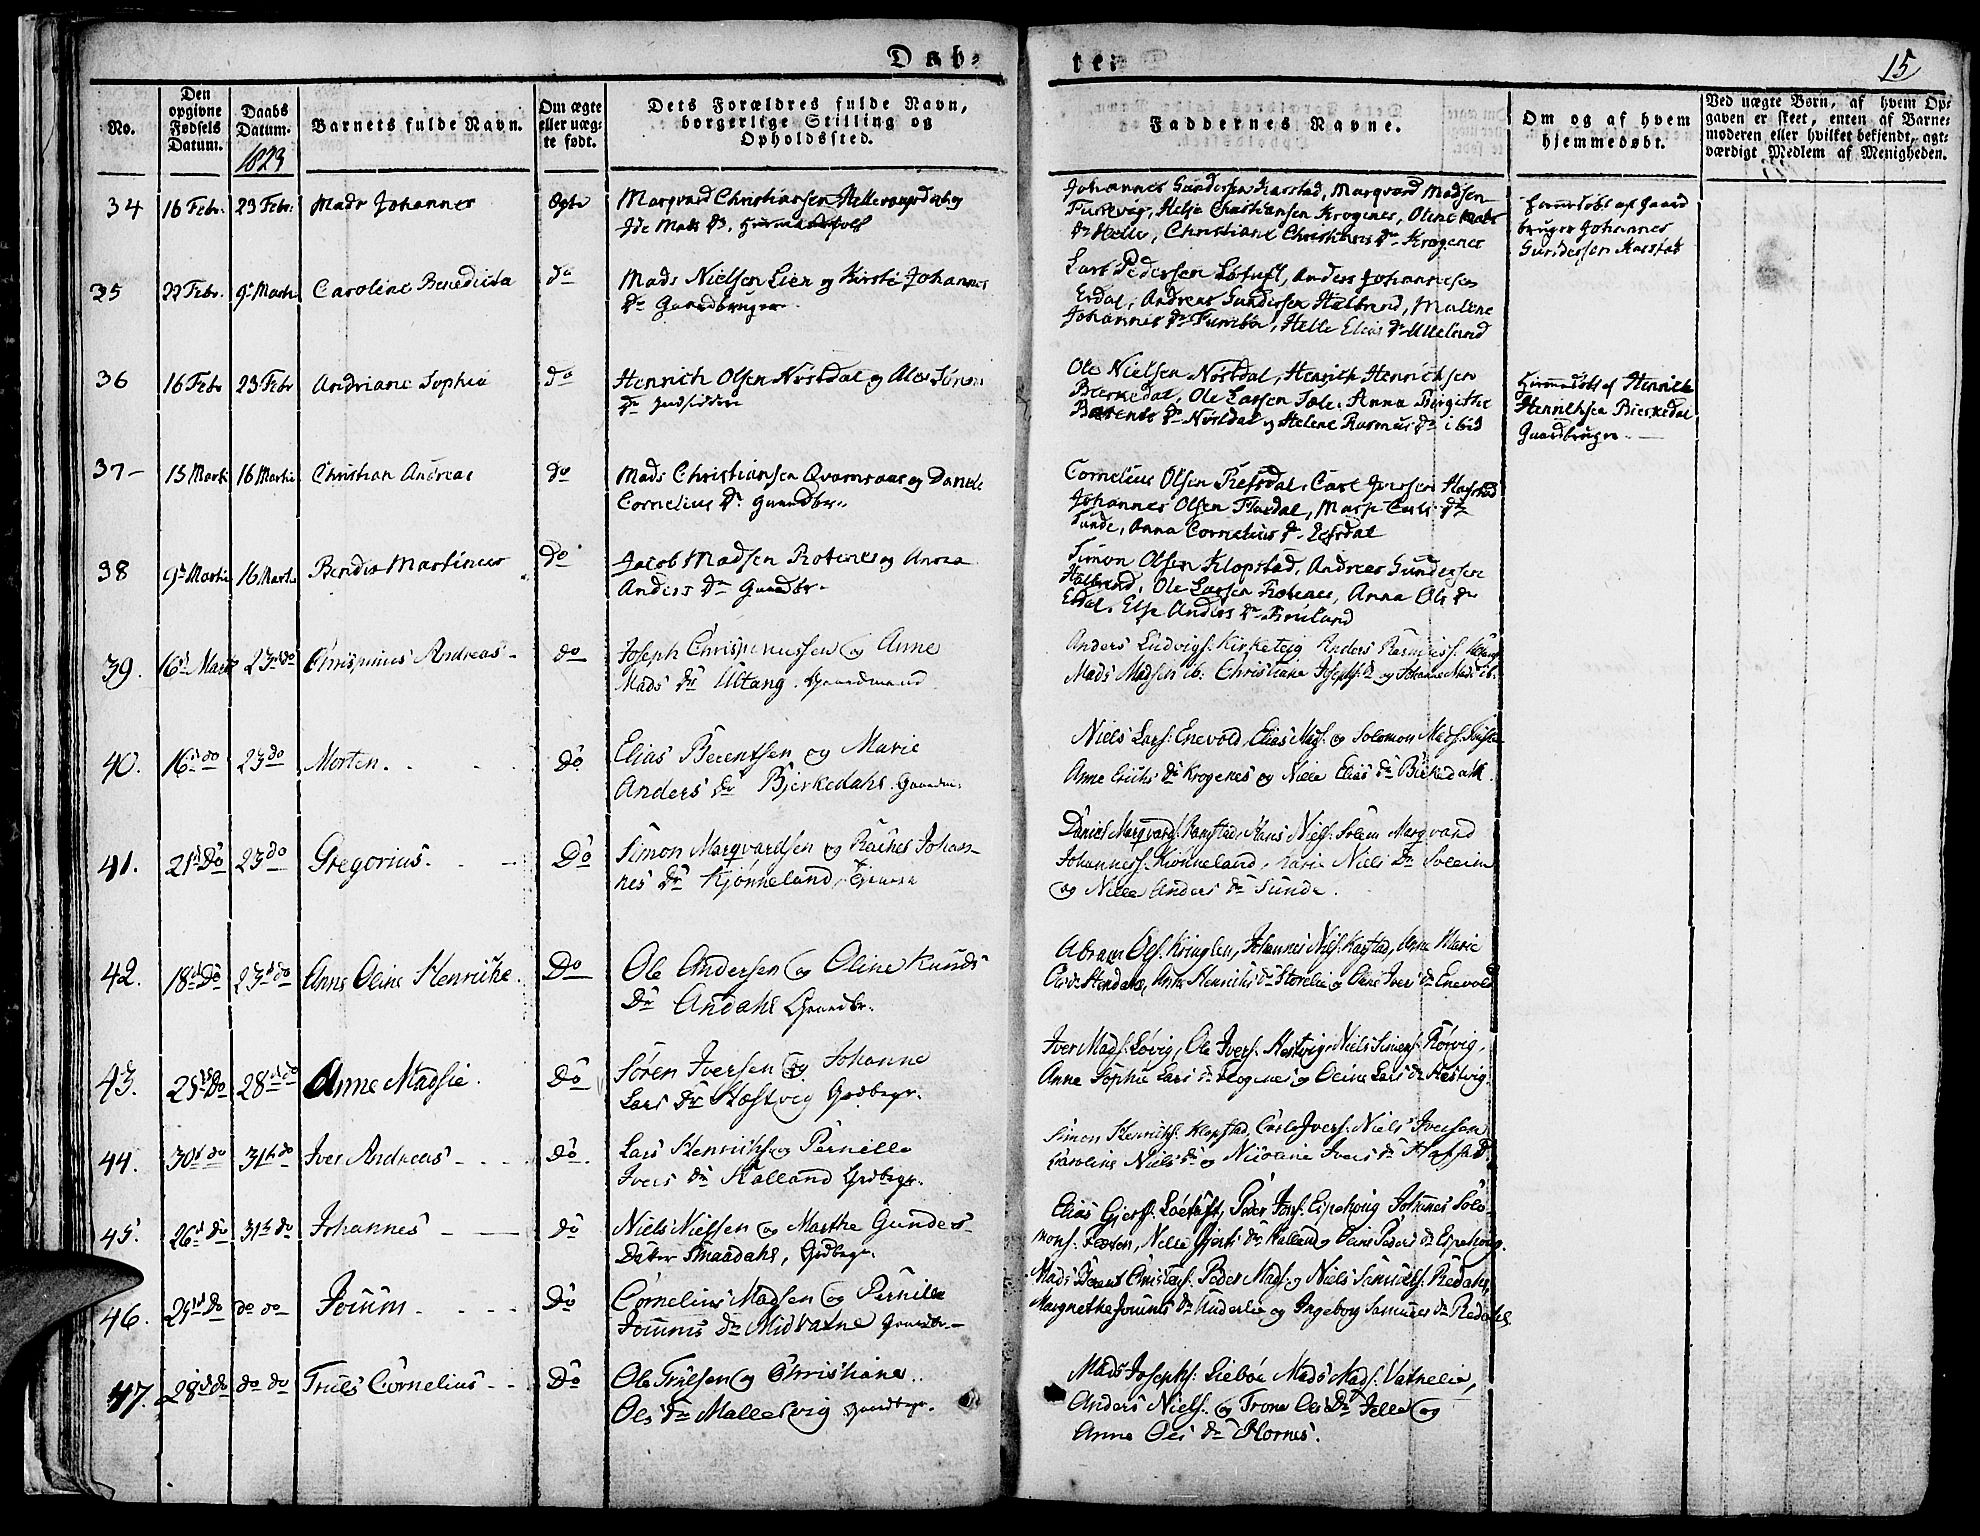 Døbte.
15
No.
Den opgivne Fødsels Datum.
Daabs Datum.
1823
Barnets fulde Navn.
Om ægte eller uægte født.
Dets Forældres fulde Navn, borgerlige Stilling og Opholdssted.
Faddernes Navne.
Om og af hvem hjemmedøbt.
Ved uægte Børn, af hvem Opgaven er skeet, enten af Barnemoderen eller hvilket bekjendt, agtværdigt Medlem af Menigheden.
34 16 Febr. 23 Febr. Mads Johannes Ægte Marqvard Christiansen og
Ide Mads Dr.
Johannes Gundersen Karstad, Marqvard Madsen
Furevig, Helje Christiansen Krogenes, Oline Mads
Dr Helle, Christiane Christians Dr Krogenes
Hiemedøbt af Gaard
bruger Johannes
Gundersen Karstad
35 22 Febr. 9de Martii Caroline Benedicta do Mads Nielsen Lien og Kirsti Johannes
Dr Gaardbruger
Lars Pedersen Løtuft, Anders Johannesen
Erdal, Andreas Gundersen Halbrend, Malene
Johannes Dr Furebøe, Helle Elias Dr Ulleland
36 16 Febr 23 Febr Andriane Sophia do Henrich Olsen Nøstdal og Ales Simon
Dr Huusfidder
Ole Nielsen Nøstdal, Henrich Henrichsen
Bierkedal, Ole Larsen Sæle, Anna Birgithe
Bærents Dr Nøstdal og Helene Rasmus Dr ibid
Hiemmedøbt af Henrich
Henrichsen Bierkedal
Gaardbruger
37 15 Martii 16 Martii Christian Andreas do Mads Christiansen Qvamsaas og Danele
Cornelius Dr Gaardbr.
Cornelius Olsen Refsdal, Carl Iversen Hafstad
Johannes Olsen Flatdal, Marje Carls Dr
Sunde, Anna Cornelius Dr Refsdal
38 9de Martii 16 Marti Bendix Martinus Do Jacob Madsen Rotenes og Anna
Anders Dr Gaardbr.
Simon Olsen Klopstad, Andreas Gundersen
Halbrend, Ole Larsen Rotenes, Anna Ols Dr
Erdal, Else Anders Dr Fruland
39. 16d Marti 23de do Chrispinus Andreas do Joseph Chrispinussen og Anne
Mads Dr Ultang. Gaardmand
Anders Ludvigs: Kirketeig Anders Rasmuss:
Mads Madsen ib: Christiane Josephs D og Johanne Mads D ib.
40. 16d do 23 do Morten. Do Elias Berentsen og Marie
Anders Dr Bjerkedahl. Gaardm.
Niels Lars: Enevold, Elias Mads: og Solomon Mads:
Anne Erichs Dr Krogenes og Nille Elias Dr Birkedahl.
41. 21d Do 23 do Gregorius. Do Simon Marqvardsen og Rachel Johan-
nes Dr Kjønneland,
Daniel Marqvards: Ramstad, Hans Niels: Solem Marqvard
Johanness: Kiønneland, Marie Niels Dr Soleim
og Nille Anders Dr Sunde.
42. 18d Do 23d do Anne Oline Henrikke. Do Ole Andersen og Oline Knuds
Dr Andahl Gaardbr.
Abram Ols: Kringlen, Johannes Niels: Karstad, Anne Marie
Ols Dr Hendahl, Anne Henrichs Dr Storelie og Oline Iver Dr Enevold
43. 25d Do 28d do Anne Madsie. Do Søren Iversen og Johanne
Lars Dr Hestvig Grdbrgr.
Iver Mads: Løvig, Ole Ivers: Hestvig, Niels Simens: Rørvig,
Anne Sophie Lars Dr Krogenes og Oline Lars Dr Hestvig.
44. 30d do 31d do Iver Andreas Do Lars Henrichs: og Pernille
Ivers Dr Kalland Grdbrgr.
Simon Henrichs: Klopstad, Carl Ivers: Niels Iversen
Caroline Niels Dr og Nicoline Ivers Dr Hafstad.
45. 26d do 31d do Johannes Do Niels Nielsen og Marthe Gunders
Datter Smaadahl, Grdbrgr.
Elias Gjers: Løetuft, Peder Jons: Espehoug Johannes Solo-
mons: , Nille Gjerts Dr Kalland og Oline Peders Dr Espehoug.
46. 25d Do do do Joium Do Cornelius Madsen og Pernille
Joiums Dr Midvatne Gaardbr.
Mads Peder Mads: og Niels Samuels: Redahl,
Margrethe Joiums Dr Anderlie og Ingeborg Samuels Dr Redahl
47. 28d do do do Truls Cornelius Do Ole Trulsen og Christiane
Ols Dr Mallesvig Gaardbrgr.
Mads Josephs: Liebøe Mads Mads: Vatnelie,
Anders Niels: og Trone Ols Dr Jelle og
Anne Ols Dr Hornes.